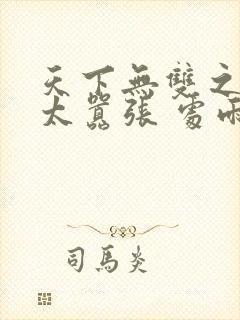 天下無雙之
太囂張 處雨
司馬炎